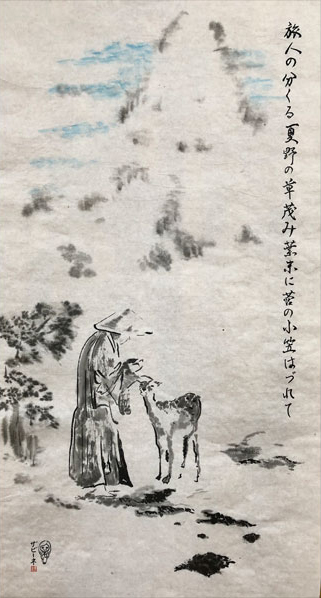 旅人の分くる夏野の草茂み葉末に菅の小笠はづれて
ザビーネ